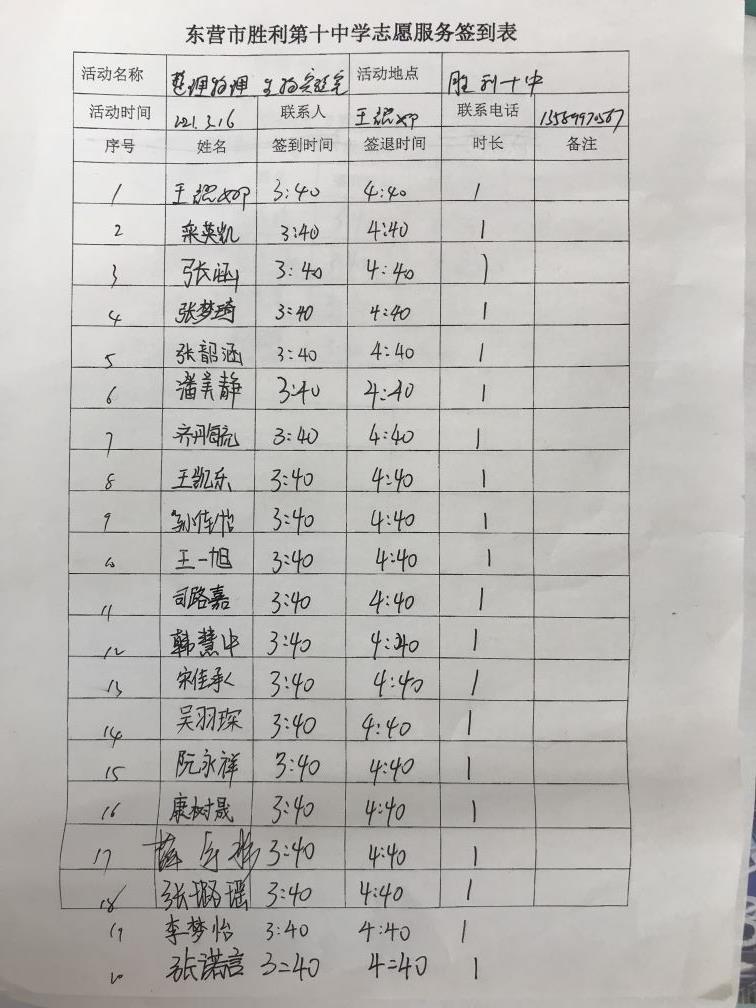 东营市胜利第十中学志愿服务签到表
活动名称 整理物理 生物实验室 活动地点 胜利十中
活动时间 221.3.16 联系人 王 联系电话
序号 姓名 签到时间 签退时间 时长 备注
1 王 3:40 4:40 1
2 栾英凯 3:40 4:40 1
3 张涵 3:40 4:40 1
4 张梦琦 3:40 4:40 1
5 张韶涵 3:40 4:40 1
6 潘美静 3:40 4:40 1
7 齐 3:40 4:40 1
8 王凯乐 3:40 4:40 1
9 孙佳怡 3:40 4:40 1
10 王一旭 3:40 4:40 1
11 司路嘉 3:40 4:40 1
12 韩慧中 3:40 4:40 1
13 宋佳承 3:40 4:40 1
14 吴羽琛 3:40 4:40 1
15 阮永祥 3:40 4:40 1
16 康树晟 3:40 4:40 1
17 3:40 4:40 1
18 张璐瑶 3:40 4:40 1
19 李梦怡 3:40 4:40 1
20 张诺言 3=40 4=40 1